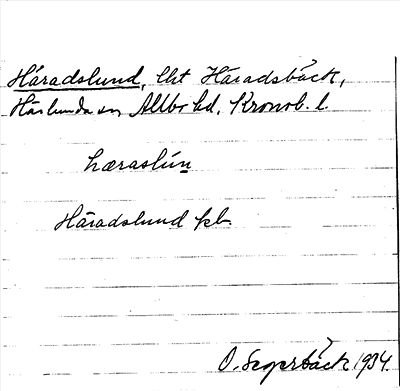 Häradslund, lht Häradsbäck,
Härlunda sn Allbo hd, Kronob. l.
hæraslún
Häradslund jkb.
O. Segerbäck 1934.